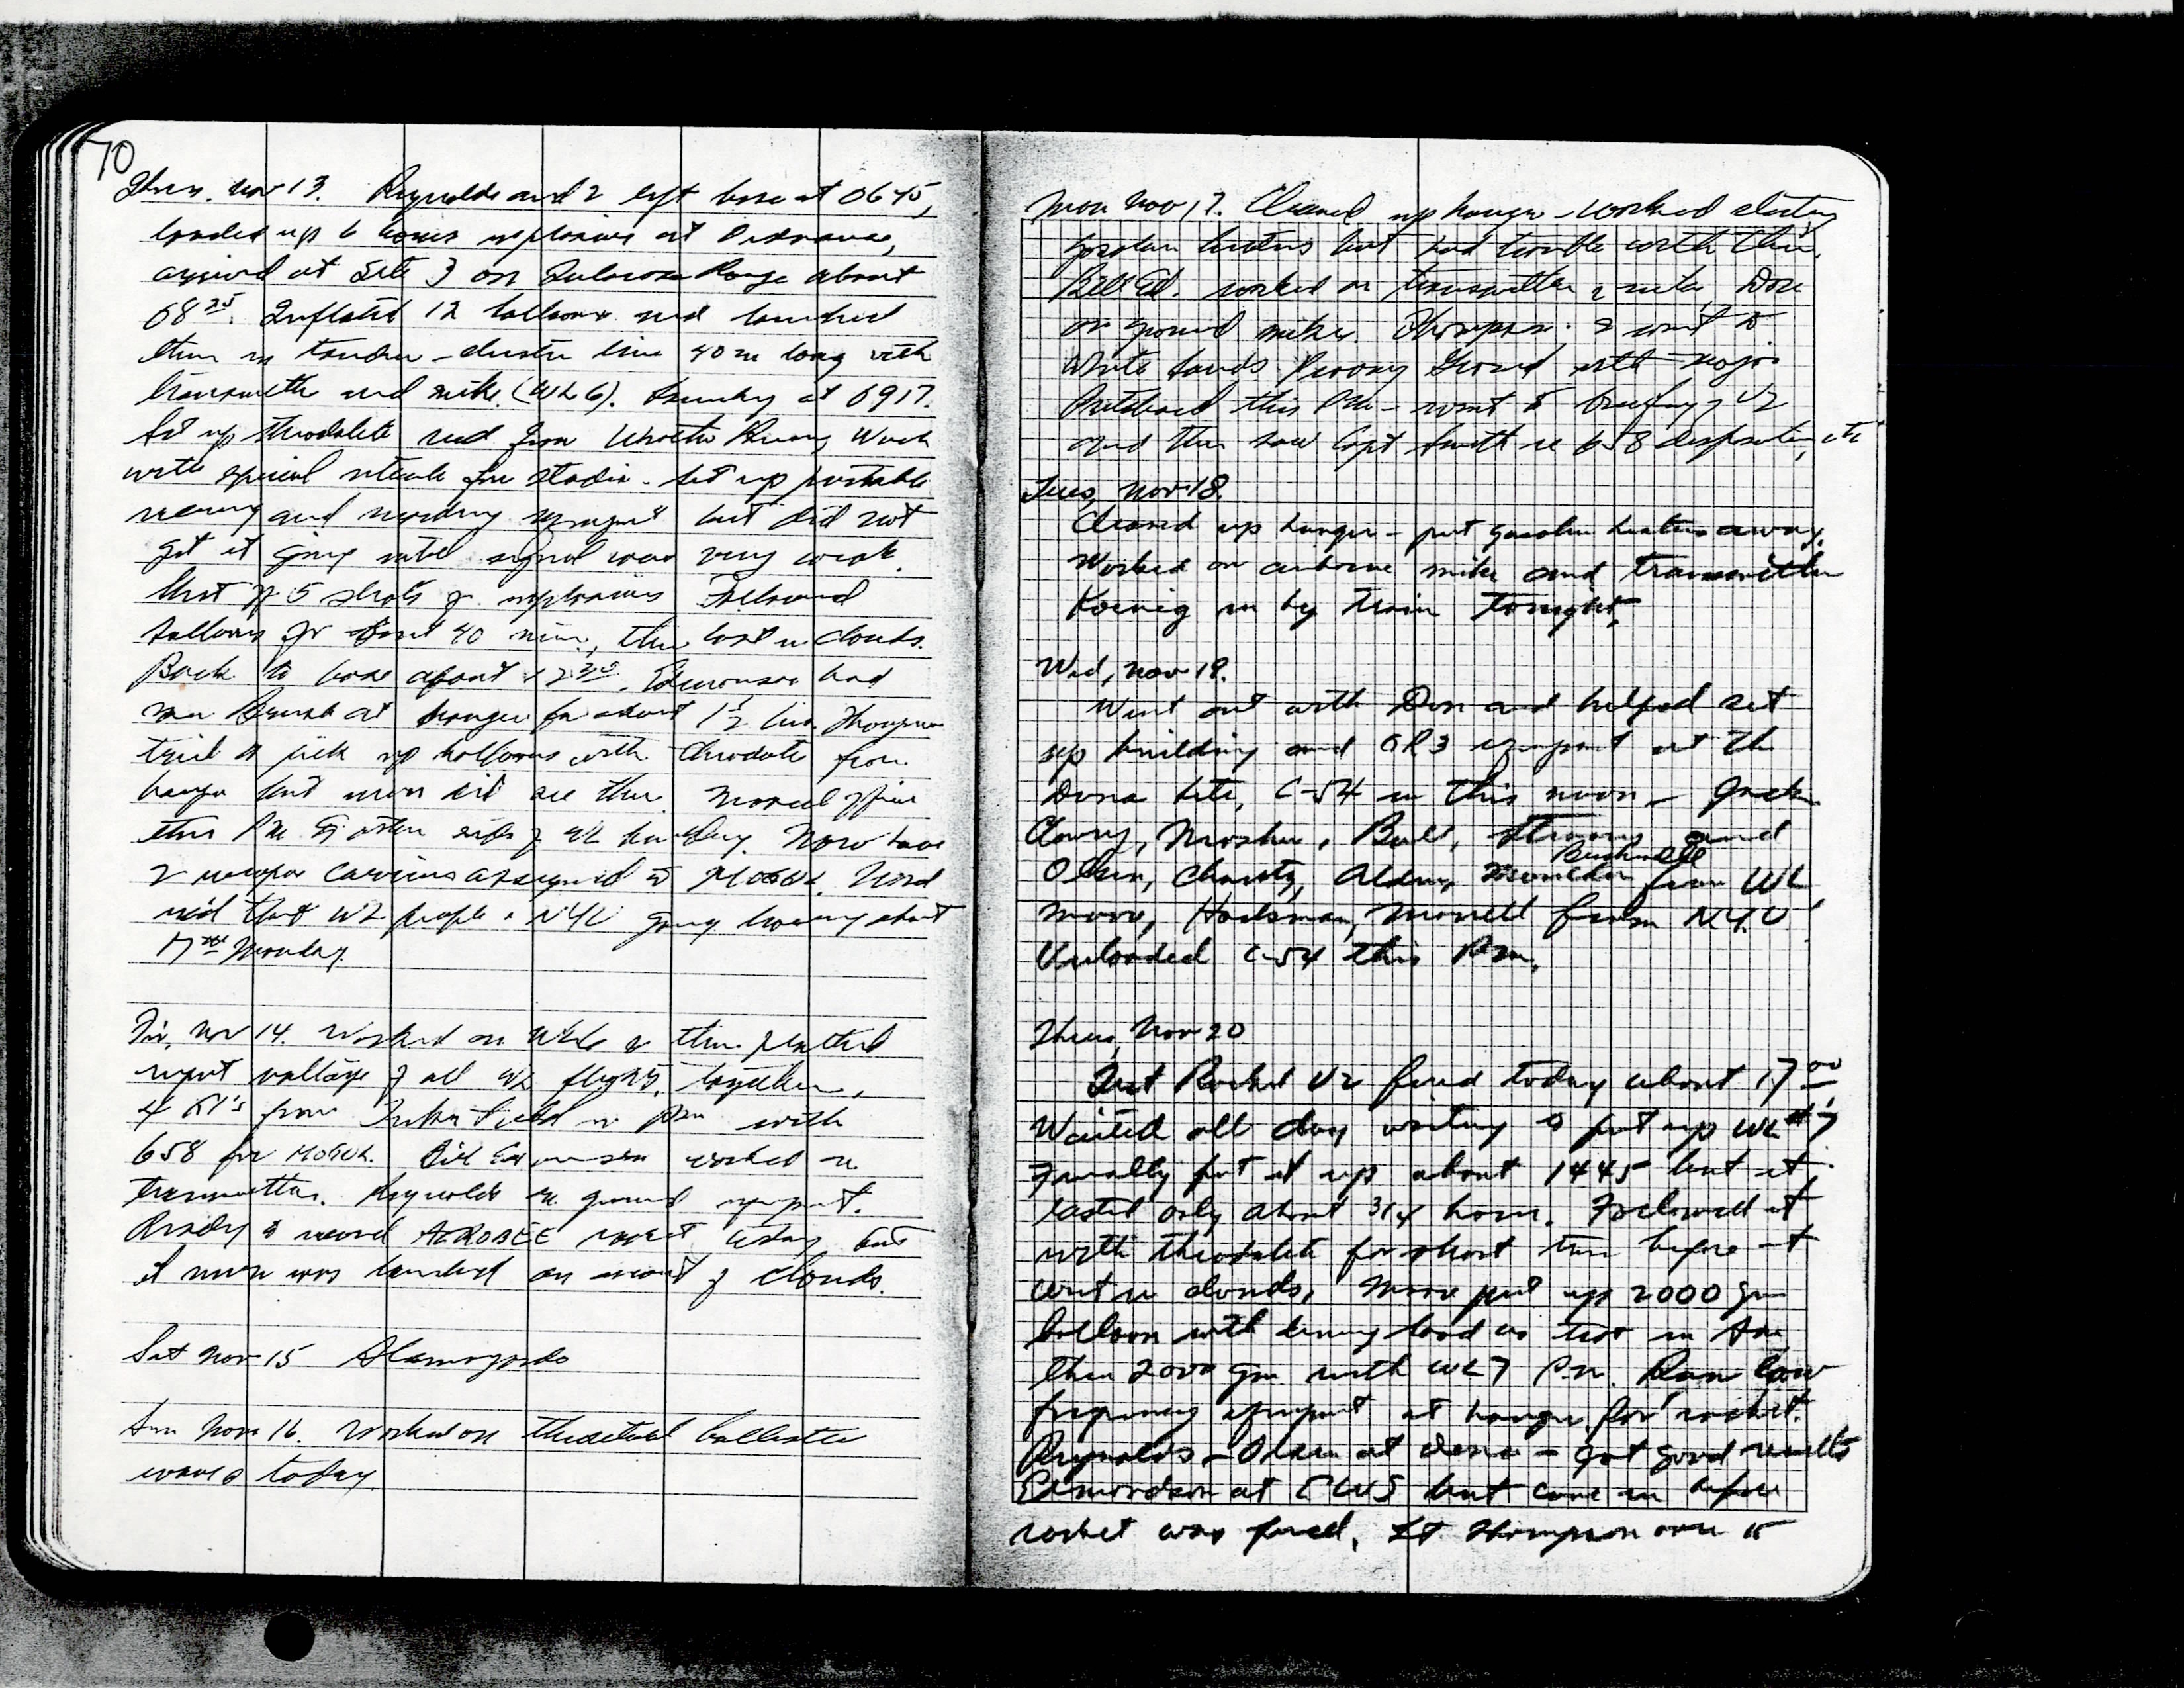 70
Thurs. Nov 13. Reynolds and I left base at 0645,
loaded up 6 boxes explosive at Ordnance,
arrived at Site 3 on Tularosa Range about
0825. Inflated 12 balloons and launched
them in tandem - cluster line 40 m long with
transmitter and mike. (WL6). Launching at 0917.
Set up theodolite and
with special reticule for stadia. Set up portable
and recording equipment but did not
get it going until signal was very weak.
Shot of 5 shots of explosives Followed
balloons for about 40 min, then lost in clouds.
Back to base about 1230. Edmondson had
at hangar for about 1½ hrs. Thompson
tried to pick up balloons with theodolite from
hangar but never did see them. Moved office
this PM to other side of building. Now have
2 weapon carriers assigned to MOGUL. Word
rec'd that WL people & NYU going about
17th Monday.
Fri, Nov 14. Worked on WL6 & then plotted
input voltage of all WL flights together.
4 from Field in PM with
658 for MOGUL. Bill Edmondson worked on
transmitter. Reynolds on ground equipment.
Ready to record AEROBEE rocket today but
it never was launched on account of clouds.
Sat Nov 15 Alamogordo
Sun Nov 16. Worked on theoretical ballistic
waves today.
Mon Nov 17. Cleaned up hangar - worked
gasoline heaters but had trouble with them.
Bill Ed. worked on transmitter & mike, Don
on ground mikes. Thompson & I went to
White Sands Proving Ground with Major
Pritchard this PM - went to briefing of V2
and then saw Capt Smith re 658 disposition, etc
Tues, Nov 18.
Cleaned up hangar - put gasoline heaters away.
Worked on airborne mike and transmitter
Koenig in by train tonight.
Wed, Nov 19.
Went out with Don and helped set
up building and GR3 equipment at the
Dona Site, C-54 in this noon - Jack
Clowry, Mosher, Bull, Strong and
Bushnell
Olsen, Charity, Alden, from WL
Moore, Hackman, Morrell from NYU
Unloaded C-54 this PM.
Thurs, Nov 20
Test Rocket V2 fired today about 1700
Waited all day waiting to put up WL #7
Finally put it up about 1445 but it
lasted only about 3/4 hour. Followed it
with theodolite for short time before it
went in clouds. Moore put up 2000 gm
balloon with dummy load as test in AM
then 2000 gm with WL7 PM. Ran low
frequency equipment at hangar for rocket.
Reynolds - Olsen at Dona - got good results
Edmondson at CW5 but came in before
rocket was fired. Lt. Thompson over to